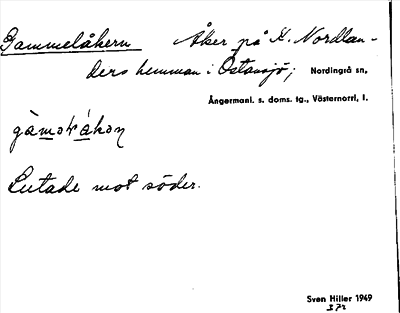 Gammelåkern Åker på K. Nordlan-
ders hemman i Östansjö; Nordingrå sn,
Ångermanl. s. doms. tg., Västernorrl, l.
Lutade mot söder.
Sven Hiller 1949